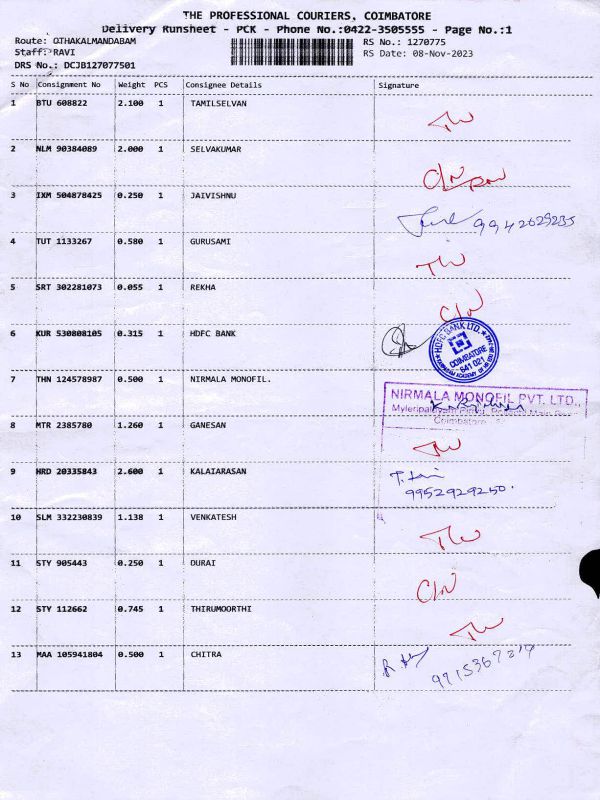 THE PROFESSIONAL COURIERS, COIMBATORE
Delivery Runsheet - PCK - Phone No.:0422-3505555 - Page No.:1
Route: OTHAKALMANDABAM RS No.: 1270775
Staff: RAVI RS Date: 08-Nov-2023
DRS No.: DCJB127077501
S No Consignment No Weight PCS Consignee Details Signature
1 BTU 608822 2.100 1 TAMILSELVAN
2 NLM 90384089 2.000 1 SELVAKUMAR
3 IXM 504878425 0.250 1 JAIVISHNU
9942629235
4 TUT 1133267 0.580 1 GURUSAMI
5 SRT 302281073 0.055 1 REKHA
C/N
6 KUR 530808105 0.315 1 HDFC BANK
HDFC BANK LTD.
COIMBATORE
641 021
7 THN 124578987 0.500 1 NIRMALA MONOFIL.
NIRMALA MONOFIL PVT. LTD.,
Coimbatore
8 MTR 2385780 1.260 1 GANESAN
9 HRD 20335843 2.600 1 KALAIARASAN
9952929250.
10 SLM 332230839 1.138 1 VENKATESH
11 STY 905443 0.250 1 DURAI
C/N
12 STY 112662 0.745 1 THIRUMOORTHI
13 MAA 105941804 0.500 1 CHITRA